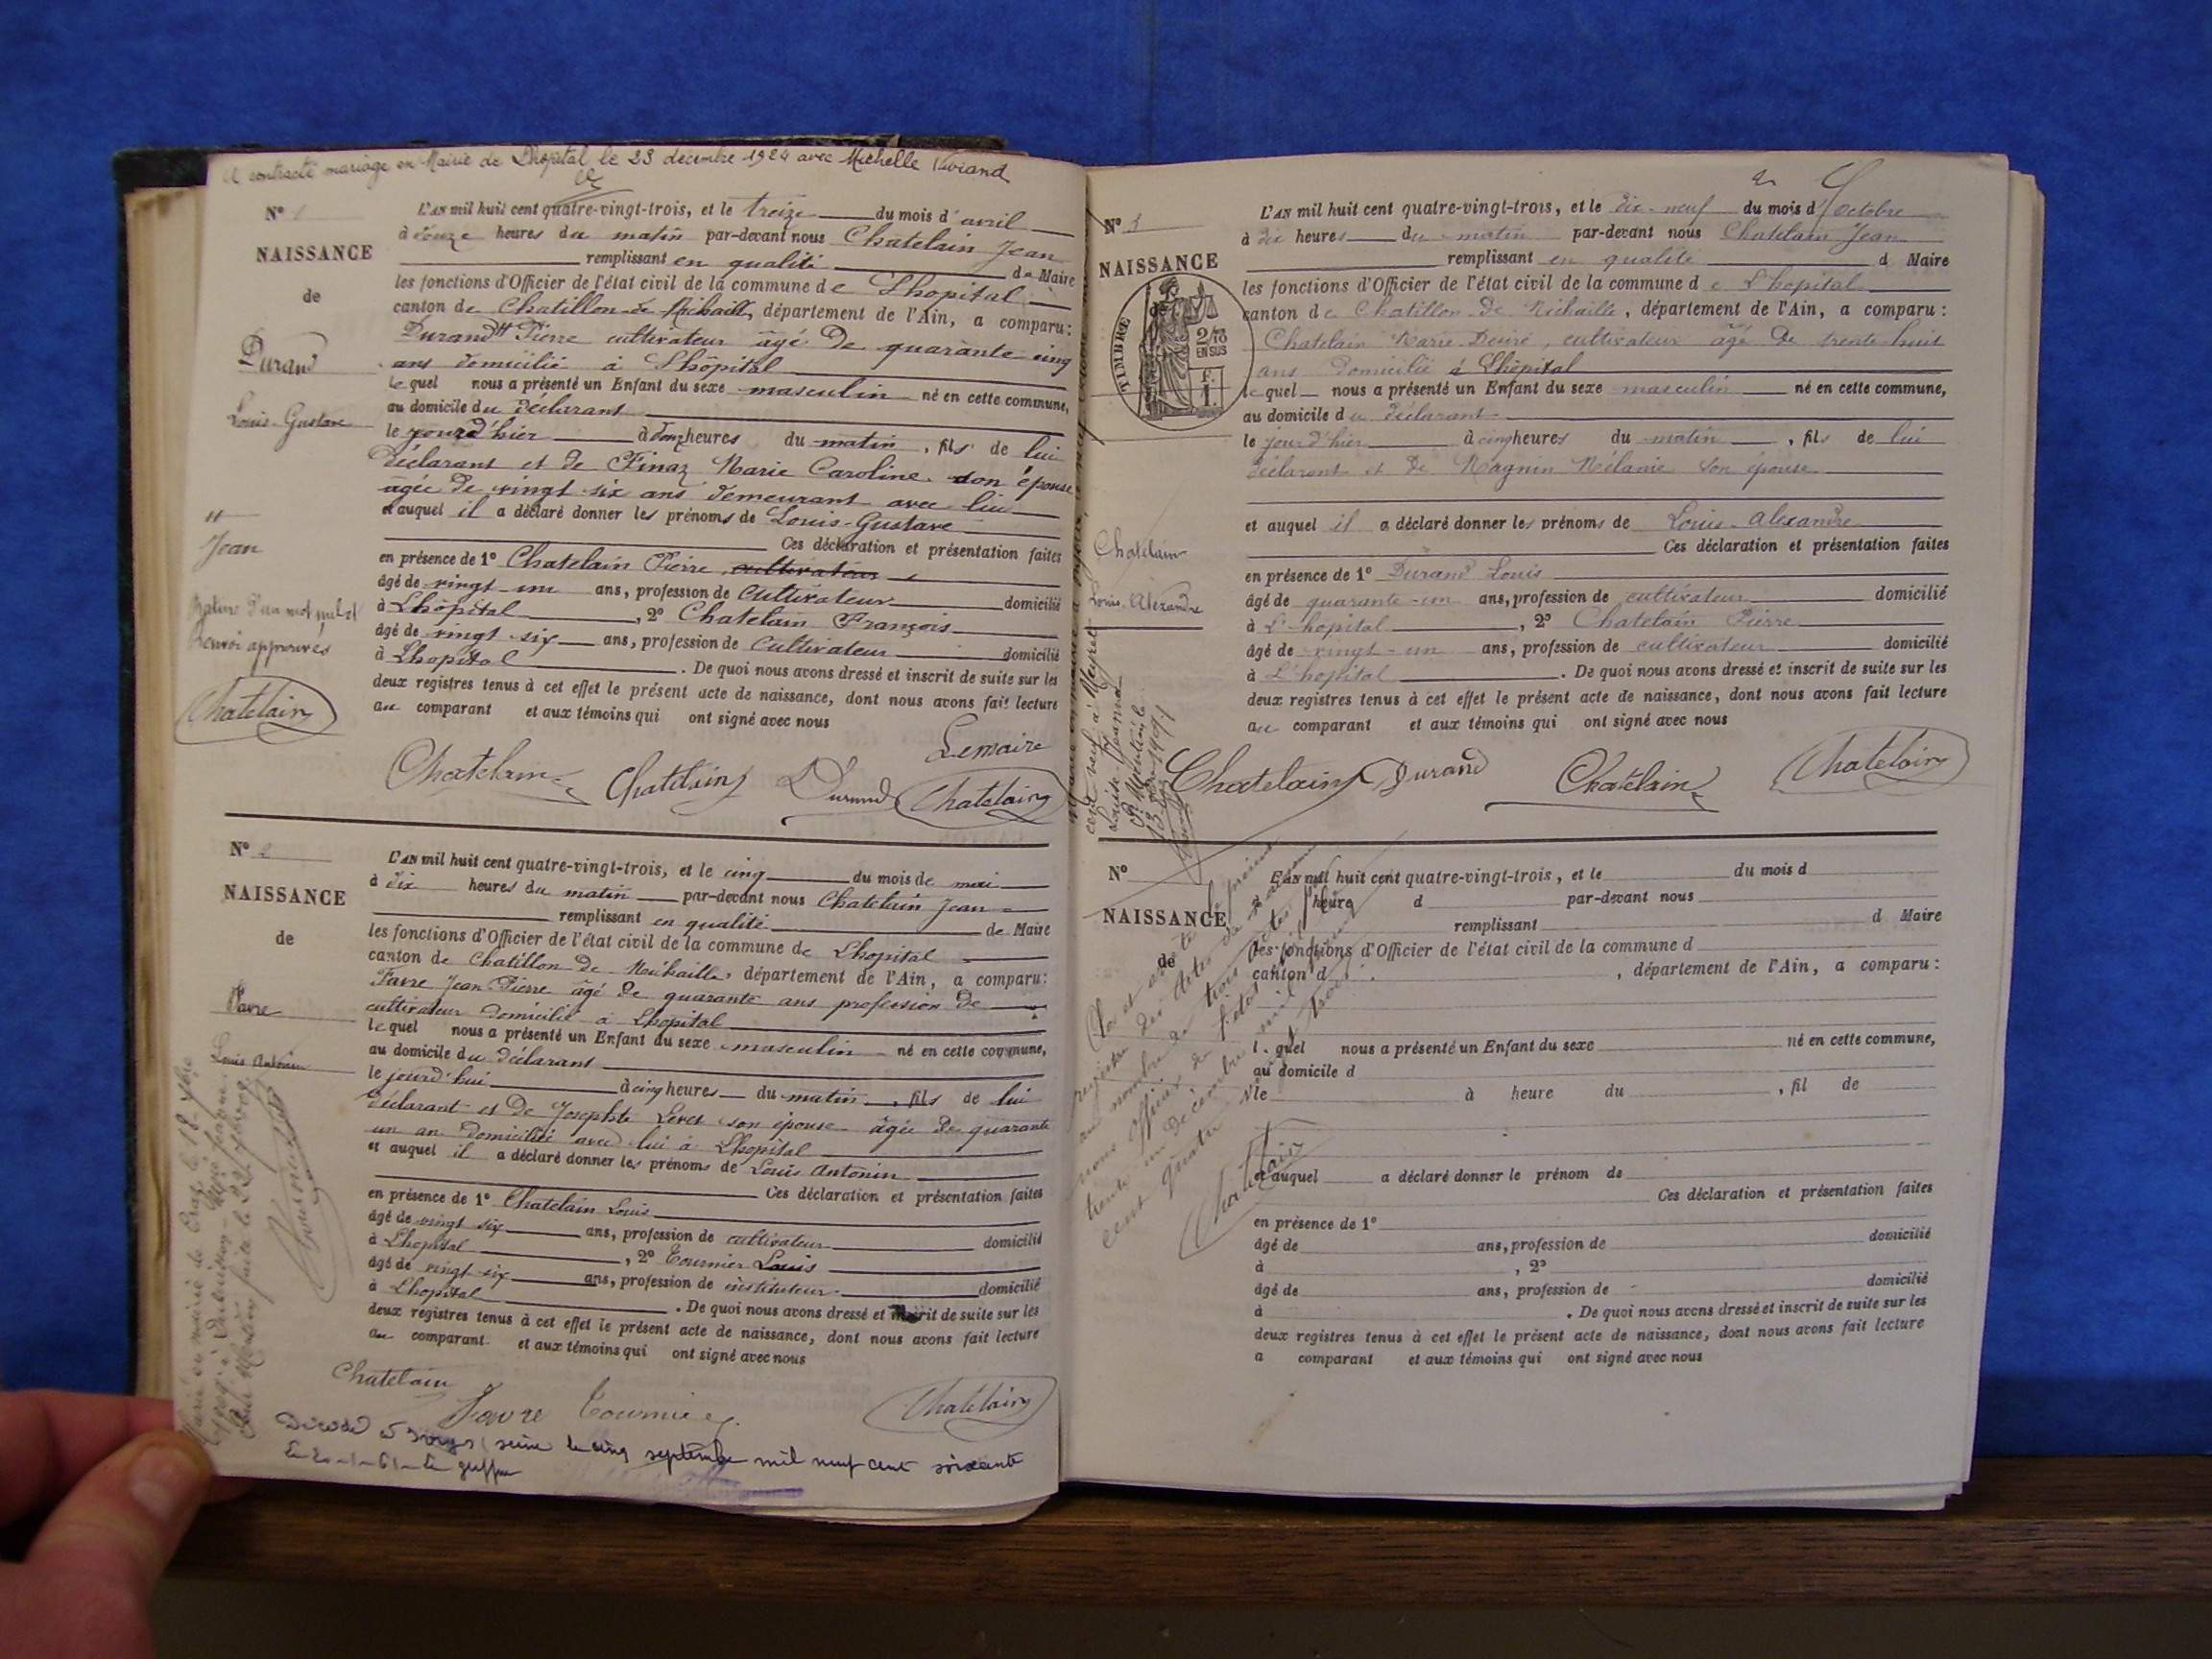 A contracté mariage en Mairie de Lhopital le 23 decembre 1924 avec Michelle
N° 1
NAISSANCE
de
Durand
Louis-Gustave
H
Jean
Rature d'un mot nul et
Renvoi approuvés
Chatelain
L'AN mil huit cent quatre-vingt-trois, et le treize du mois d'avril
à douze heures du matin par-devant nous Chatelain Jean
remplissant en qualité de Maire
les fonctions d'Officier de l'état civil de la commune de Lhopital
canton de Chatillon de Michaille, département de l'Ain, a comparu:
Durand H Pierre cultivateur âgé de quarante cinq
ans domicilié à Lhôpital
le quel nous a présenté un Enfant du sexe masculin né en cette commune,
au domicile du déclarant
le jourd'hier à donz heures du matin, fils de lui
déclarant et de Finaz Marie Caroline son épouse
âgée de vingt six ans demeurant avec lui
et auquel il a déclaré donner les prénoms de Louis-Gustave
Ces déclaration et présentation faites
en présence de 1° Chatelain Pierre cultivateur
âgé de vingt-un ans, profession de Cultivateur domicilié
à Lhôpital, 2° Chatelain François
âgé de vingt six ans, profession de Cultivateur domicilié
à Lhopital. De quoi nous avons dressé et inscrit de suite sur les
deux registres tenus à cet effet le présent acte de naissance, dont nous avons fait lecture
au comparant et aux témoins qui ont signé avec nous
Lemaire
Chatelain Chatelain Durand Chatelain
N° 2
NAISSANCE
de
Favre
Louis Antonin
L'AN mil huit cent quatre-vingt-trois, et le cinq du mois de mai
à dix heures du matin par-devant nous Chatelain Jean
remplissant en qualité de Maire
les fonctions d'Officier de l'état civil de la commune de Lhopital
canton de Chatillon de Michaille, département de l'Ain, a comparu:
Favre Jean Pierre âgé de quarante ans profession de
cultivateur domicilié à Lhopital
le quel nous a présenté un Enfant du sexe masculin né en cette commune,
au domicile du déclarant
le jourd'hui à cinq heures du matin, fils de lui
déclarant et de Josephte Levet son épouse âgée de quarante
un an domiciliée avec lui à Lhopital
et auquel il a déclaré donner les prénoms de Louis Antonin
Ces déclaration et présentation faites
en présence de 1° Chatelain Louis
âgé de vingt six ans, profession de cultivateur domicilié
à Lhopital, 2° Tournier Louis
âgé de vingt six ans, profession de instituteur domicilié
à Lhopital. De quoi nous avons dressé et inscrit de suite sur les
deux registres tenus à cet effet le présent acte de naissance, dont nous avons fait lecture
au comparant et aux témoins qui ont signé avec nous
Chatelain Favre Tournier Chatelain
Décédé à (seine le cinq septembre mil neuf cent soixante
N° 3
NAISSANCE
de
TIMBRE
2/10
EN SUS
F.
1.
Chatelain
Louis-Alexandre
L'AN mil huit cent quatre-vingt-trois, et le dix-neuf du mois d'Octobre
à dix heures du matin par-devant nous Chatelain Jean
remplissant en qualité d Maire
les fonctions d'Officier de l'état civil de la commune de L'hopital
canton de Chatillon-de-Michaille, département de l'Ain, a comparu:
Chatelain Marie-Désiré, cultivateur âgé de trente-huit
ans domicilié à Lhôpital
le quel nous a présenté un Enfant du sexe masculin né en cette commune,
au domicile du déclarant
le jourd'hier à cinq heures du matin, fils de lui
déclarant et de Magnin Mélanie son épouse
et auquel il a déclaré donner les prénoms de Louis-Alexandre
Ces déclaration et présentation faites
en présence de 1° Durand Louis
âgé de quarante-un ans, profession de cultivateur domicilié
à L'hopital, 2° Chatelain Pierre
âgé de vingt-un ans, profession de cultivateur domicilié
à L'hopital. De quoi nous avons dressé et inscrit de suite sur les
deux registres tenus à cet effet le présent acte de naissance, dont nous avons fait lecture
au comparant et aux témoins qui ont signé avec nous
Chatelain Durand Chatelain Chatelain
N°
NAISSANCE
de
L'AN mil huit cent quatre-vingt-trois, et le du mois d
heure d par-devant nous
remplissant d Maire
les fonctions d'Officier de l'état civil de la commune d
canton d, département de l'Ain, a comparu:
l quel nous a présenté un Enfant du sexe né en cette commune,
au domicile d
le à heure du, fil de
et auquel a déclaré donner le prénom de
Ces déclaration et présentation faites
en présence de 1°
âgé de ans, profession de domicilié
à, 2°
âgé de ans, profession de domicilié
à. De quoi nous avons dressé et inscrit de suite sur les
deux registres tenus à cet effet le présent acte de naissance, dont nous avons fait lecture
a comparant et aux témoins qui ont signé avec nous